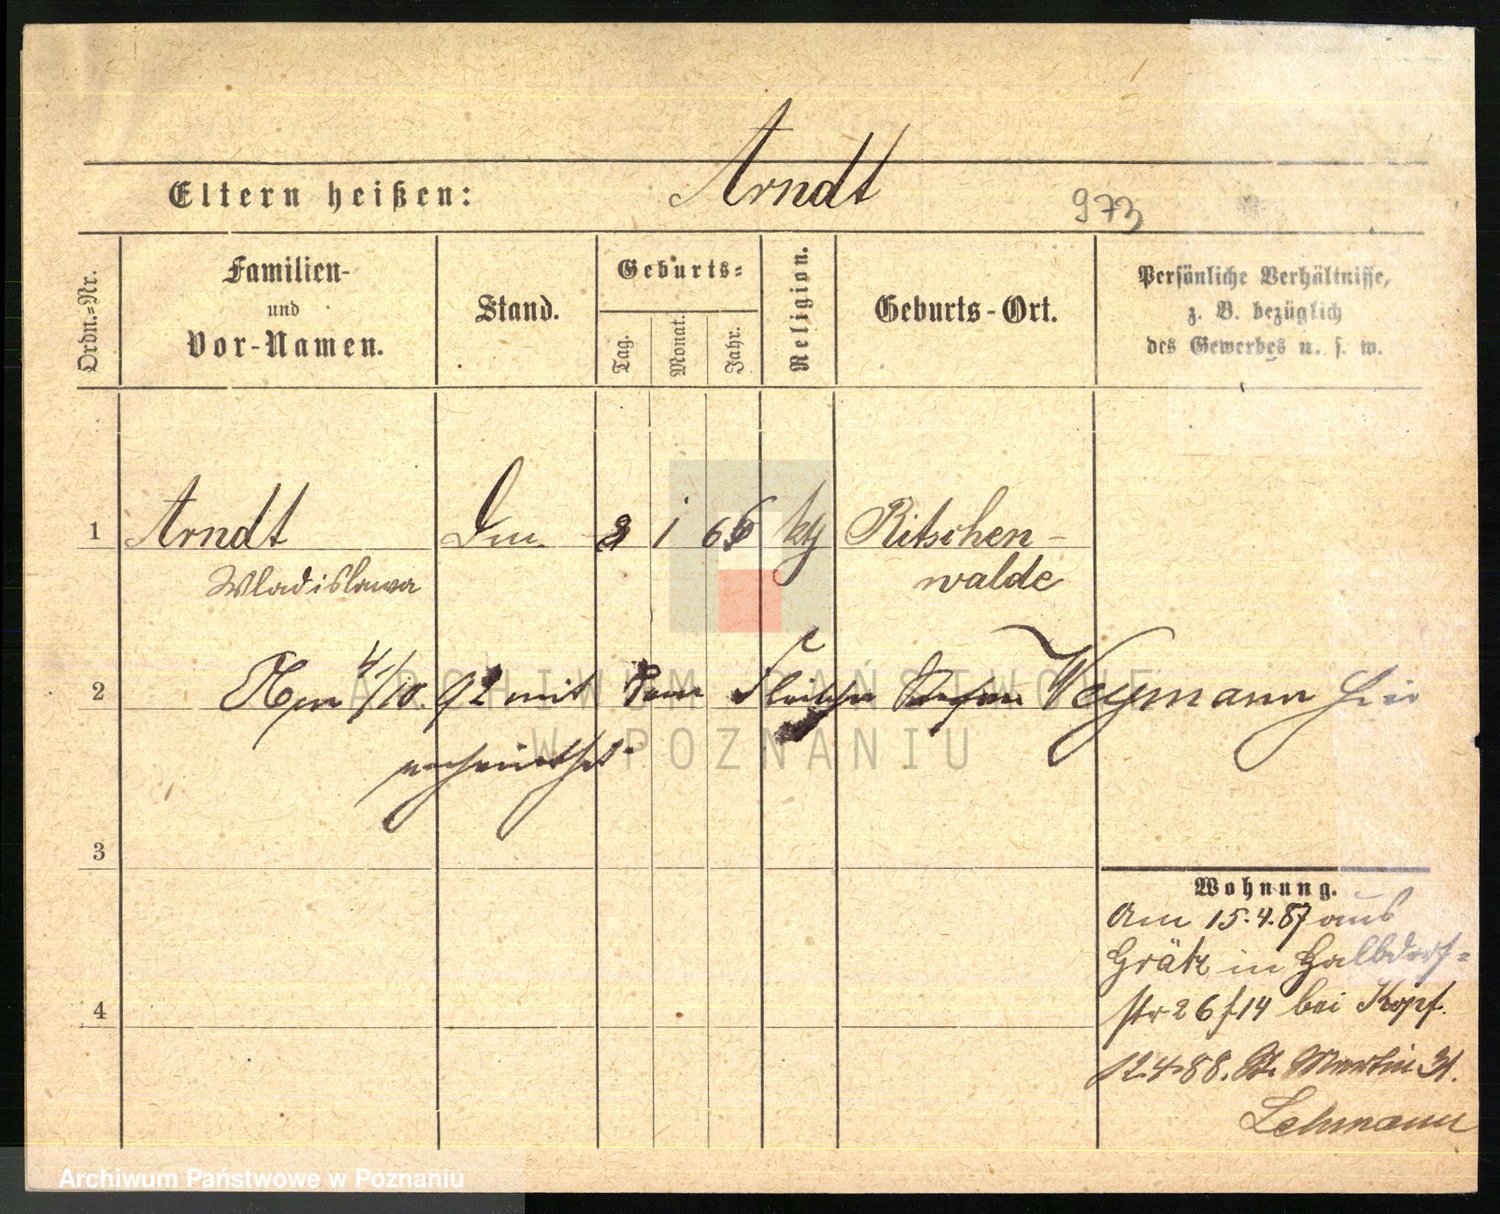 Arndt
Eltern heißen:
973
Ordn.-Nr.
Familien-
und
Vor-Namen.
Stand.
Geburts-
Tag.
Monat.
Jahr.
Religion.
Geburts-Ort.
Persönliche Verhältnisse,
z. B. bezüglich
des Gewerbes u. s. w.
1 Arndt 1 66 kth Ritschen-
Wladislawa walde
2 Am 4/10. 92 mit dem Fleischer Stefan Weymann hier
verheirathet
ARCHIWUM PAŃSTWOWE
W POZNANIU
3
Wohnung.
Am 15.4.87 aus
Grätz in Halbdorf-
4
str 26 f 14 bei Kopf.
12 4 88. St. Martin 31.
Lehmann
Archiwum Państwowe w Poznaniu